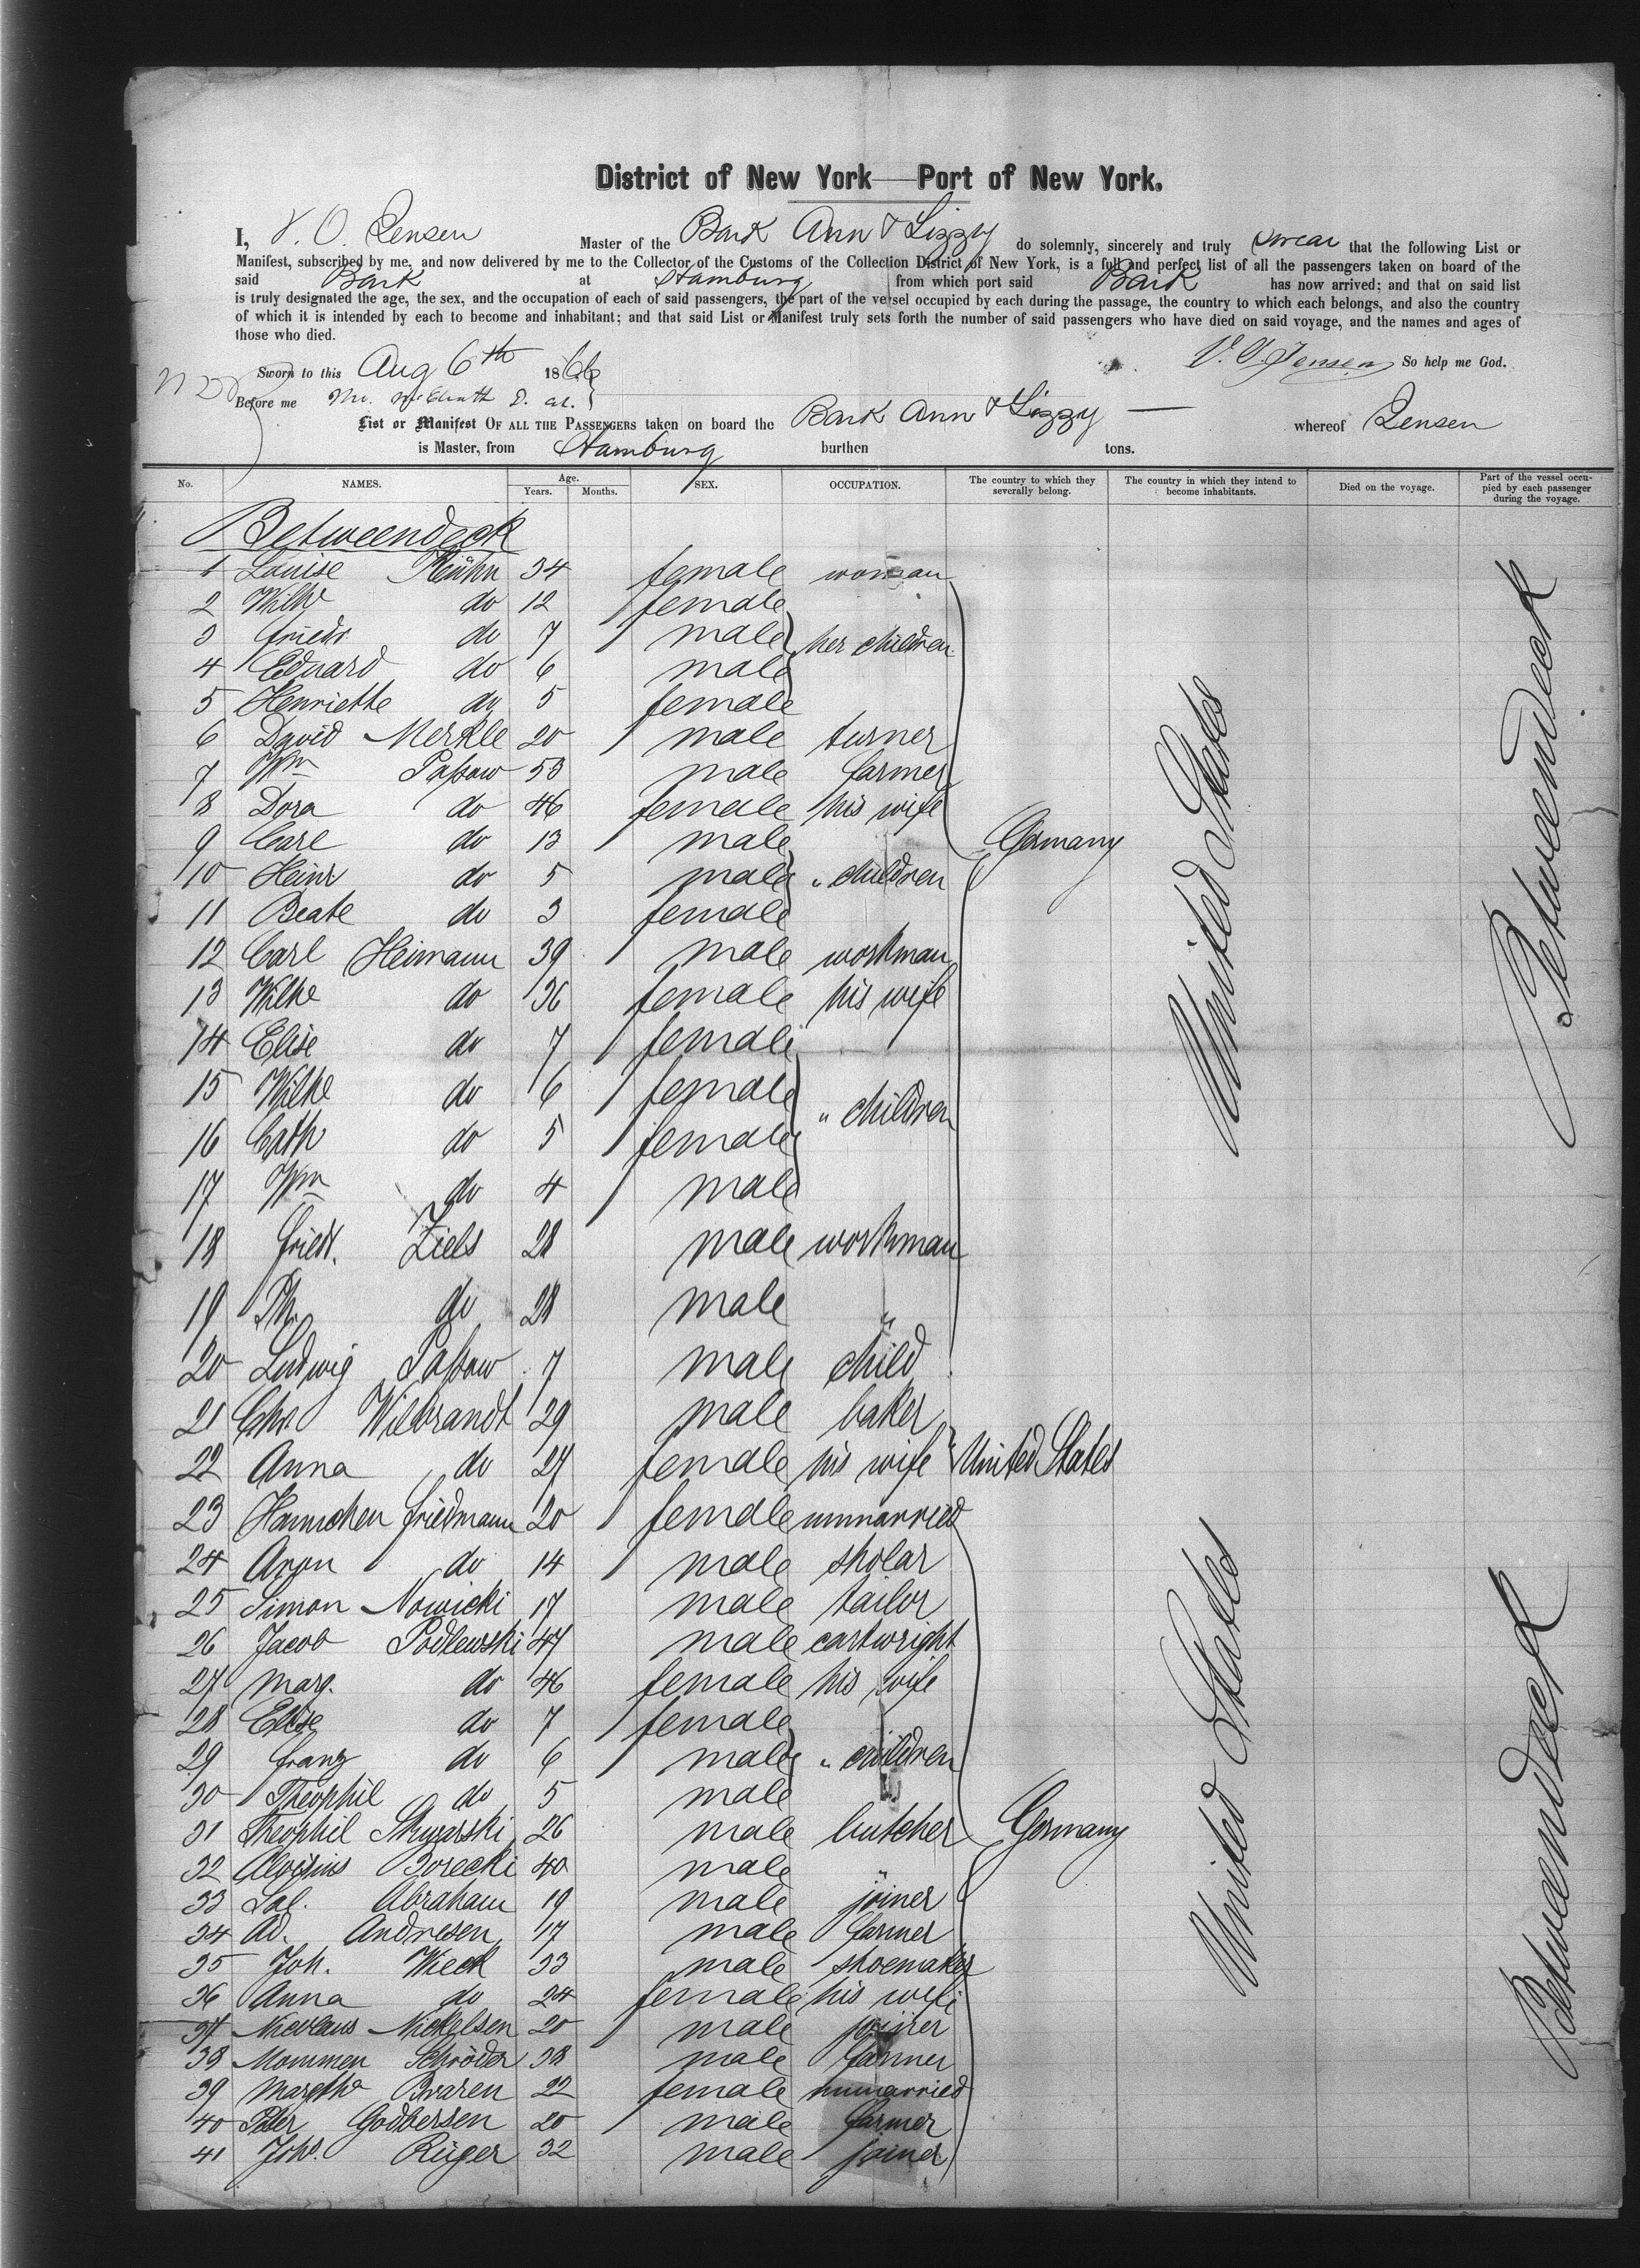 District of New York—Port of New York.
I, V. O. Jensen Master of the Bark Ann & Lizzy do solemnly, sincerely and truly swear that the following List or
Manifest, subscribed by me, and now delivered by me to the Collector of the Customs of the Collection District of New York, is a full and perfect list of all the passengers taken on board of the
said Bark at Hamburg from which port said Bark has now arrived; and that on said list
is truly designated the age, the sex, and the occupation of each of said passengers, the part of the vessel occupied by each during the passage, the country to which each belongs, and also the country
of which it is intended by each to become and inhabitant; and that said List or Manifest truly sets forth the number of said passengers who have died on said voyage, and the names and ages of
those who died.
V. O. Jensen So help me God.
Sworn to this Aug 6th 1866
Before me
List or Manifest OF ALL THE PASSENGERS taken on board the Bark Ann & Lizzy — whereof Jensen
is Master, from Hamburg burthen tons.
No. NAMES. Age. Years. Months. SEX. OCCUPATION. The country to which they severally belong. The country in which they intend to become inhabitants. Died on the voyage. Part of the vessel occupied by each passenger during the voyage.
Betweendeck
1 Louise Kühn 34 female woman
2 Wilhe do 12 female
3 Friedr do 7 male her children
4 Eduard do 6 male
5 Henriette do 5 female
6 David Merkle 20 male turner
7 Wm Passow 53 male farmer
8 Dora do 46 female his wife
9 Carl do 13 male Germany
10 Heinr do 5 male " children
11 Beate do 3 female
12 Carl Heimann 39 male workman
13 Wilhe do 36 female his wife
14 Elise do 7 female
15 Wilhe do 6 female " children
16 Cath do 5 female
17 Wm do 4 male
18 Friedr. Ziels 28 male workman
19 Th. do 28 male "
20 Ludwig Passow 7 male child
21 Chr. Wilbrandt 29 male baker
22 Anna do 27 female his wife United States
23 Hannchen Friedmann 20 female unmarried
24 Aron do 14 male sholar
25 Simon Nowicki 17 male tailor
26 Jacob Podlewski 47 male cartwright
27 Marg. do 46 female his wife
28 Elise do 7 female
29 Franz do 6 male " children
30 Theophil do 5 male
31 Theophil 26 male butcher Germany
32 Aloysius Borecki 40 male "
33 Sal. Abraham 19 male joiner
34 Ad. Andresen 17 male farmer
35 Joh. Wieck 33 male shoemaker
36 Anna do 24 female his wife
37 Nicolaus Nickelsen 20 male joiner
38 Mommen Schröder 38 male farmer
39 Margthe Braren 22 female unmarried
40 Peter Godbersen 20 male farmer
41 Johs. Rüger 32 male joiner
United States
Betweendeck
United States
Betweendeck